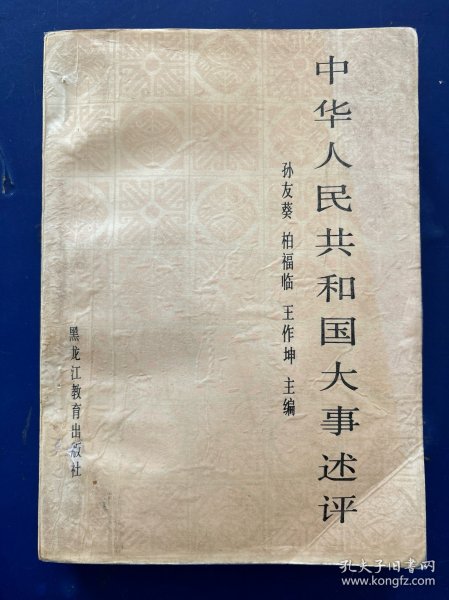 中华人民共和国大事述评
孙友葵 柏福临 王作坤 主编
黑龙江教育出版社
孔夫子旧书网
www.kongfz.com